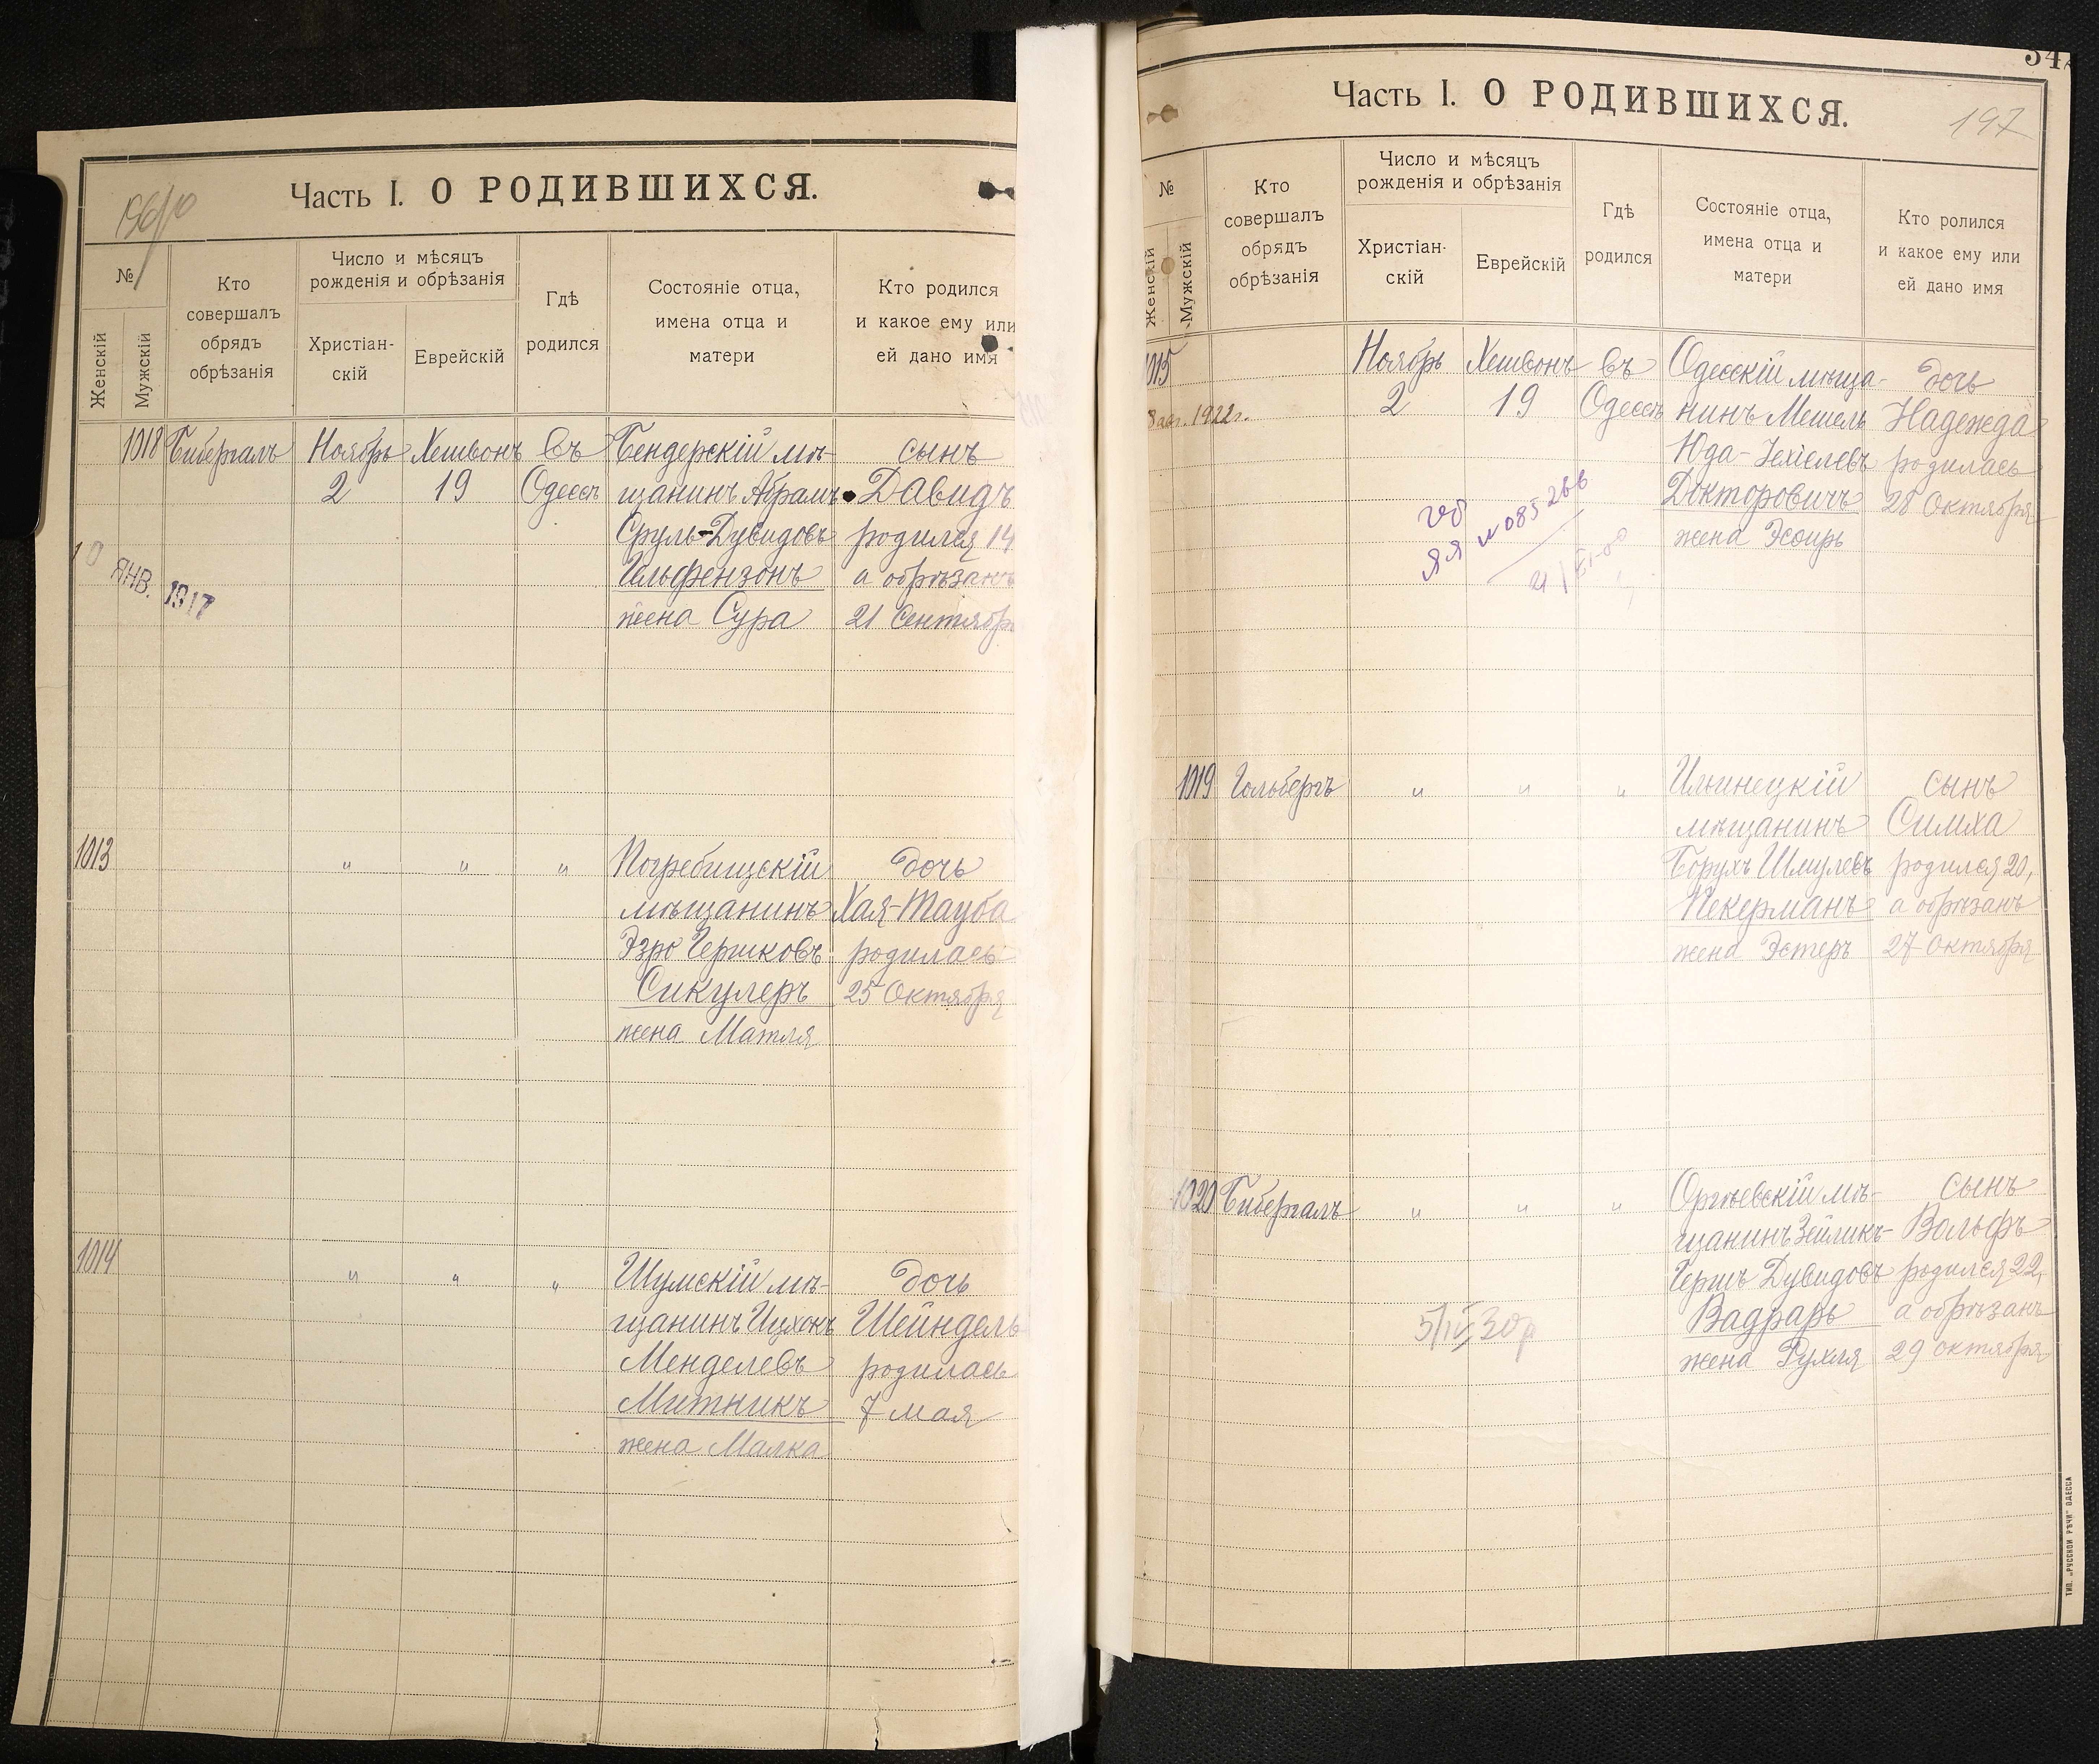 Часть I. О РОДИВШИХСЯ.
№
Женскій
Мужскій
Кто
совершалъ
обрядъ
обрѣзанія
Число и мѣсяцъ
рожденія и обрѣзанія
Христіан-
скій
Еврейскій
Гдѣ
родился
Состояніе отца,
имена отца и
матери
Кто родился
и какое ему или
ей дано имя
1018
Бибергалъ
Ноябрь
2
Хешвонъ
19
въ
Одессѣ
Бендерскій мѣ-
щанинъ Абрамъ
Сруль-Дувидовъ
Гельфензонъ
жена Сура
сынъ
Давидъ
родился 14
а обрѣзанъ
21 Сентября
10 ЯНВ. 1917
1013
"
"
"
Погребищскій
мѣщанинъ
Эзро Гершковъ
Сикулеръ
жена Матля
дочь
Хая-Тауба
родилась
25 Октября
1014
"
"
"
Шумскій мѣ-
щанинъ Ицхокъ
Менделевъ
Митникъ
жена Малка
дочь
Шейндель
родилась
7 мая
34
Часть I. О РОДИВШИХСЯ.
197
№
Женскій
Мужскій
Кто
совершалъ
обрядъ
обрѣзанія
Число и мѣсяцъ
рожденія и обрѣзанія
Христіан-
скій
Еврейскій
Гдѣ
родился
Состояніе отца,
имена отца и
матери
Кто ролился
и какое ему или
ей дано имя
1015
1922г.
Ноябрь
2
Хешвонъ
19
въ
Одессѣ
Одесскій мѣща-
нинъ Мешель
Юда-Іехіелевъ
Докторовичъ
жена Эсѳирь
дочь
Надежда
родилась
28 Октября
ЯЯ № 085266
1019
Гольбергъ
"
"
"
Ильинецкій
мѣщанинъ
Борухъ Шмулевъ
Пекерманъ
жена Эстеръ
сынъ
Симха
родился 20,
а обрѣзанъ
27 Октября
1020
Бибергалъ
"
"
"
Оргѣевскій мѣ-
щанинъ Зейликъ-
Гершъ Дувидовъ
Вадраръ
жена Рухля
сынъ
Вольфъ
родился 22,
а обрѣзанъ
29 октября
5/IV 30р
ТИП. „РУССКОЙ РѢЧИ" ОДЕССА